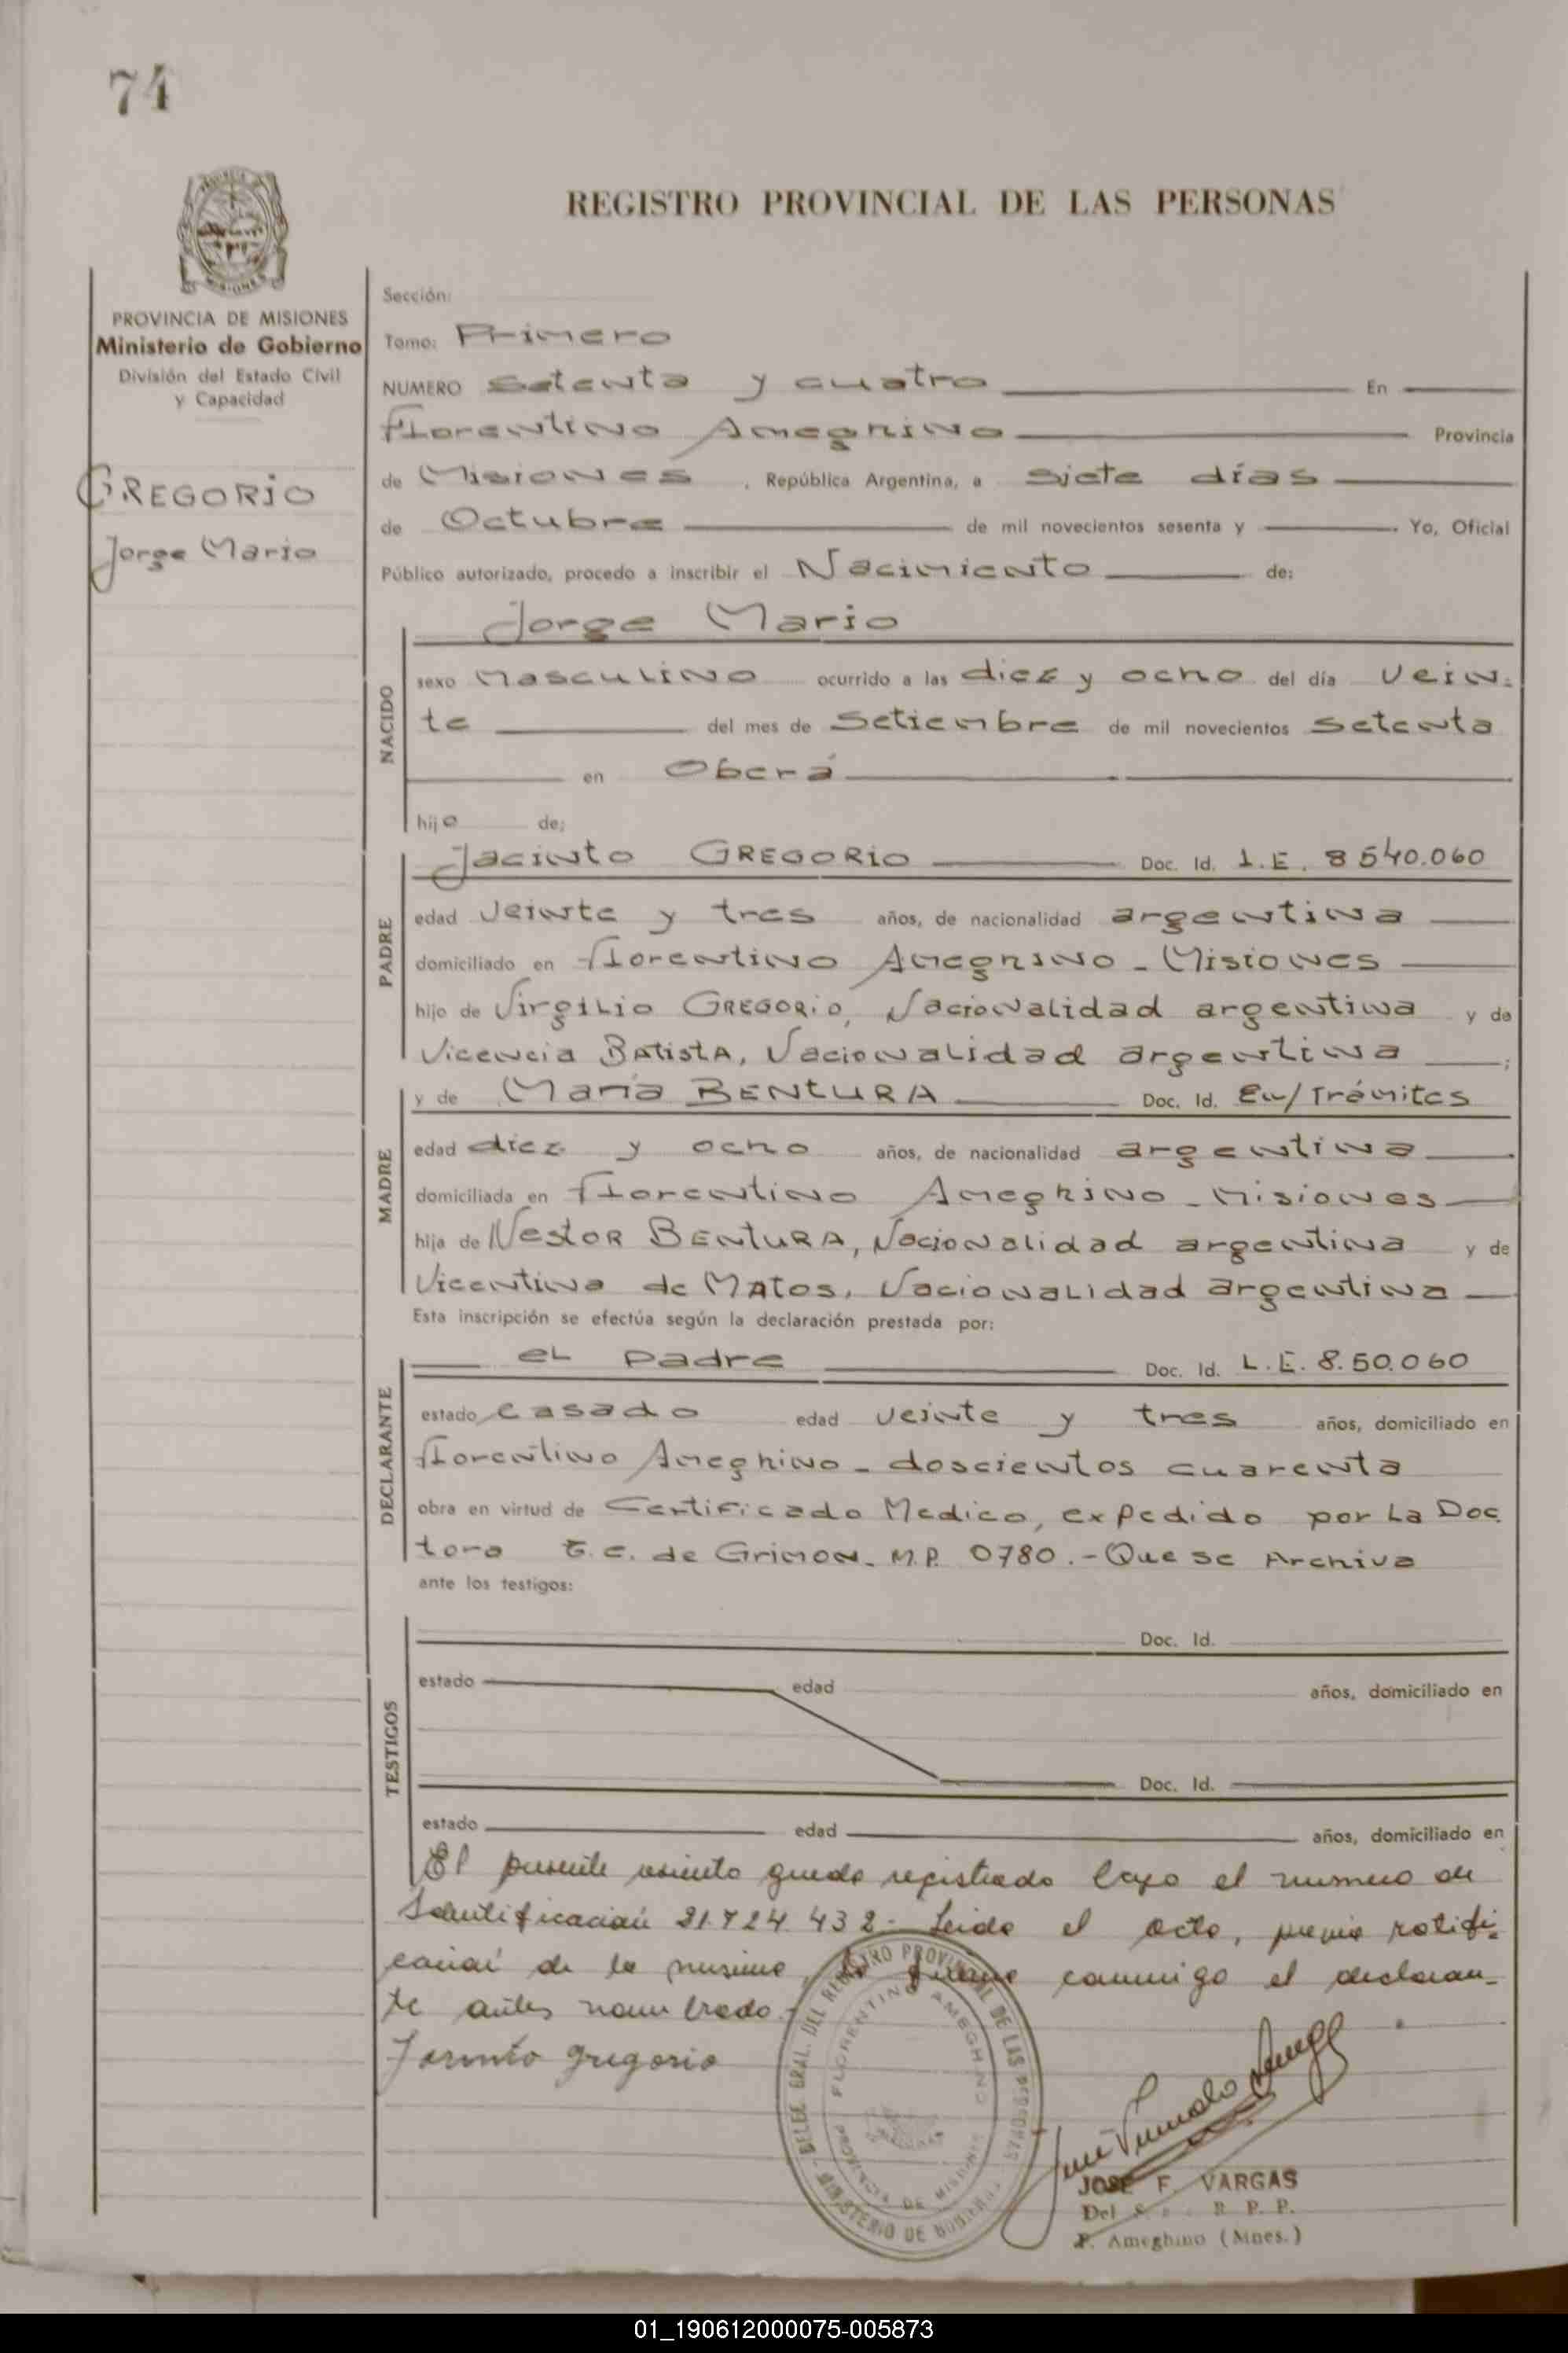 74
REGISTRO PROVINCIAL DE LAS PERSONAS
PROVINCIA DE MISIONES
Ministerio de Gobierno
División del Estado Civil
y Capacidad
GREGORIO
Jorge Mario
Sección:
Tomo: Primero
NUMERO Setenta y cuatro En
Florentino Ameghino Provincia
de Misiones, República Argentina, a siete días
de Octubre de mil novecientos sesenta y Yo, Oficial
Público autorizado, procedo a inscribir el Nacimiento de:
Jorge Mario
NACIDO
sexo Masculino ocurrido a las diez y ocho del día Vein-
te del mes de Setiembre de mil novecientos setenta
en Oberá
hijo de:
PADRE
Jacinto GREGORIO Doc. Id. L.E. 8540.060
edad Veinte y tres años, de nacionalidad argentina
domiciliado en Florentino Ameghino - Misiones
hijo de Virgilio GREGORIO, Nacionalidad argentina y de
Vicencia BAtistA, Nacionalidad argentina ;
MADRE
y de María BENtURA Doc. Id. En/Trámites
edad diez y ocho años, de nacionalidad argentina
domiciliada en Florentino Ameghino - Misiones
hija de Nestor BENtURA, Nacionalidad argentina y de
Vicentina de MAtos, Nacionalidad argentina
Esta inscripción se efectúa según la declaración prestada por:
DECLARANTE
eL Padre Doc. Id. L.E. 8.50.060
estado casado edad veinte y tres años, domiciliado en
Florentino Ameghino - doscientos cuarenta
obra en virtud de Certificado Medico, expedido por La Doc
tora E.C. de Grimon - M.P. 0780.- Que se Archiva
ante los testigos:
TESTIGOS
Doc. Id.
estado edad años, domiciliado en
Doc. Id.
estado edad años, domiciliado en
El presente asiento queda registrado bajo el numero de
Identificación 21.724.432.- Leida el acta, previa ratifi-
cación de la misma, la firma conmigo el declaran-
te antes nombrado.-
Jacinto Gregorio
DELEG. GRAL. DEL REGISTRO PROVINCIAL DE LAS PERSONAS
MINISTERIO DE GOBIERNO
FLORENTINO AMEGHINO
PROVINCIA DE MISIONES
JOSE F. VARGAS
Del R. P. P.
F. Ameghino (Mnes.)
01_190612000075-005873